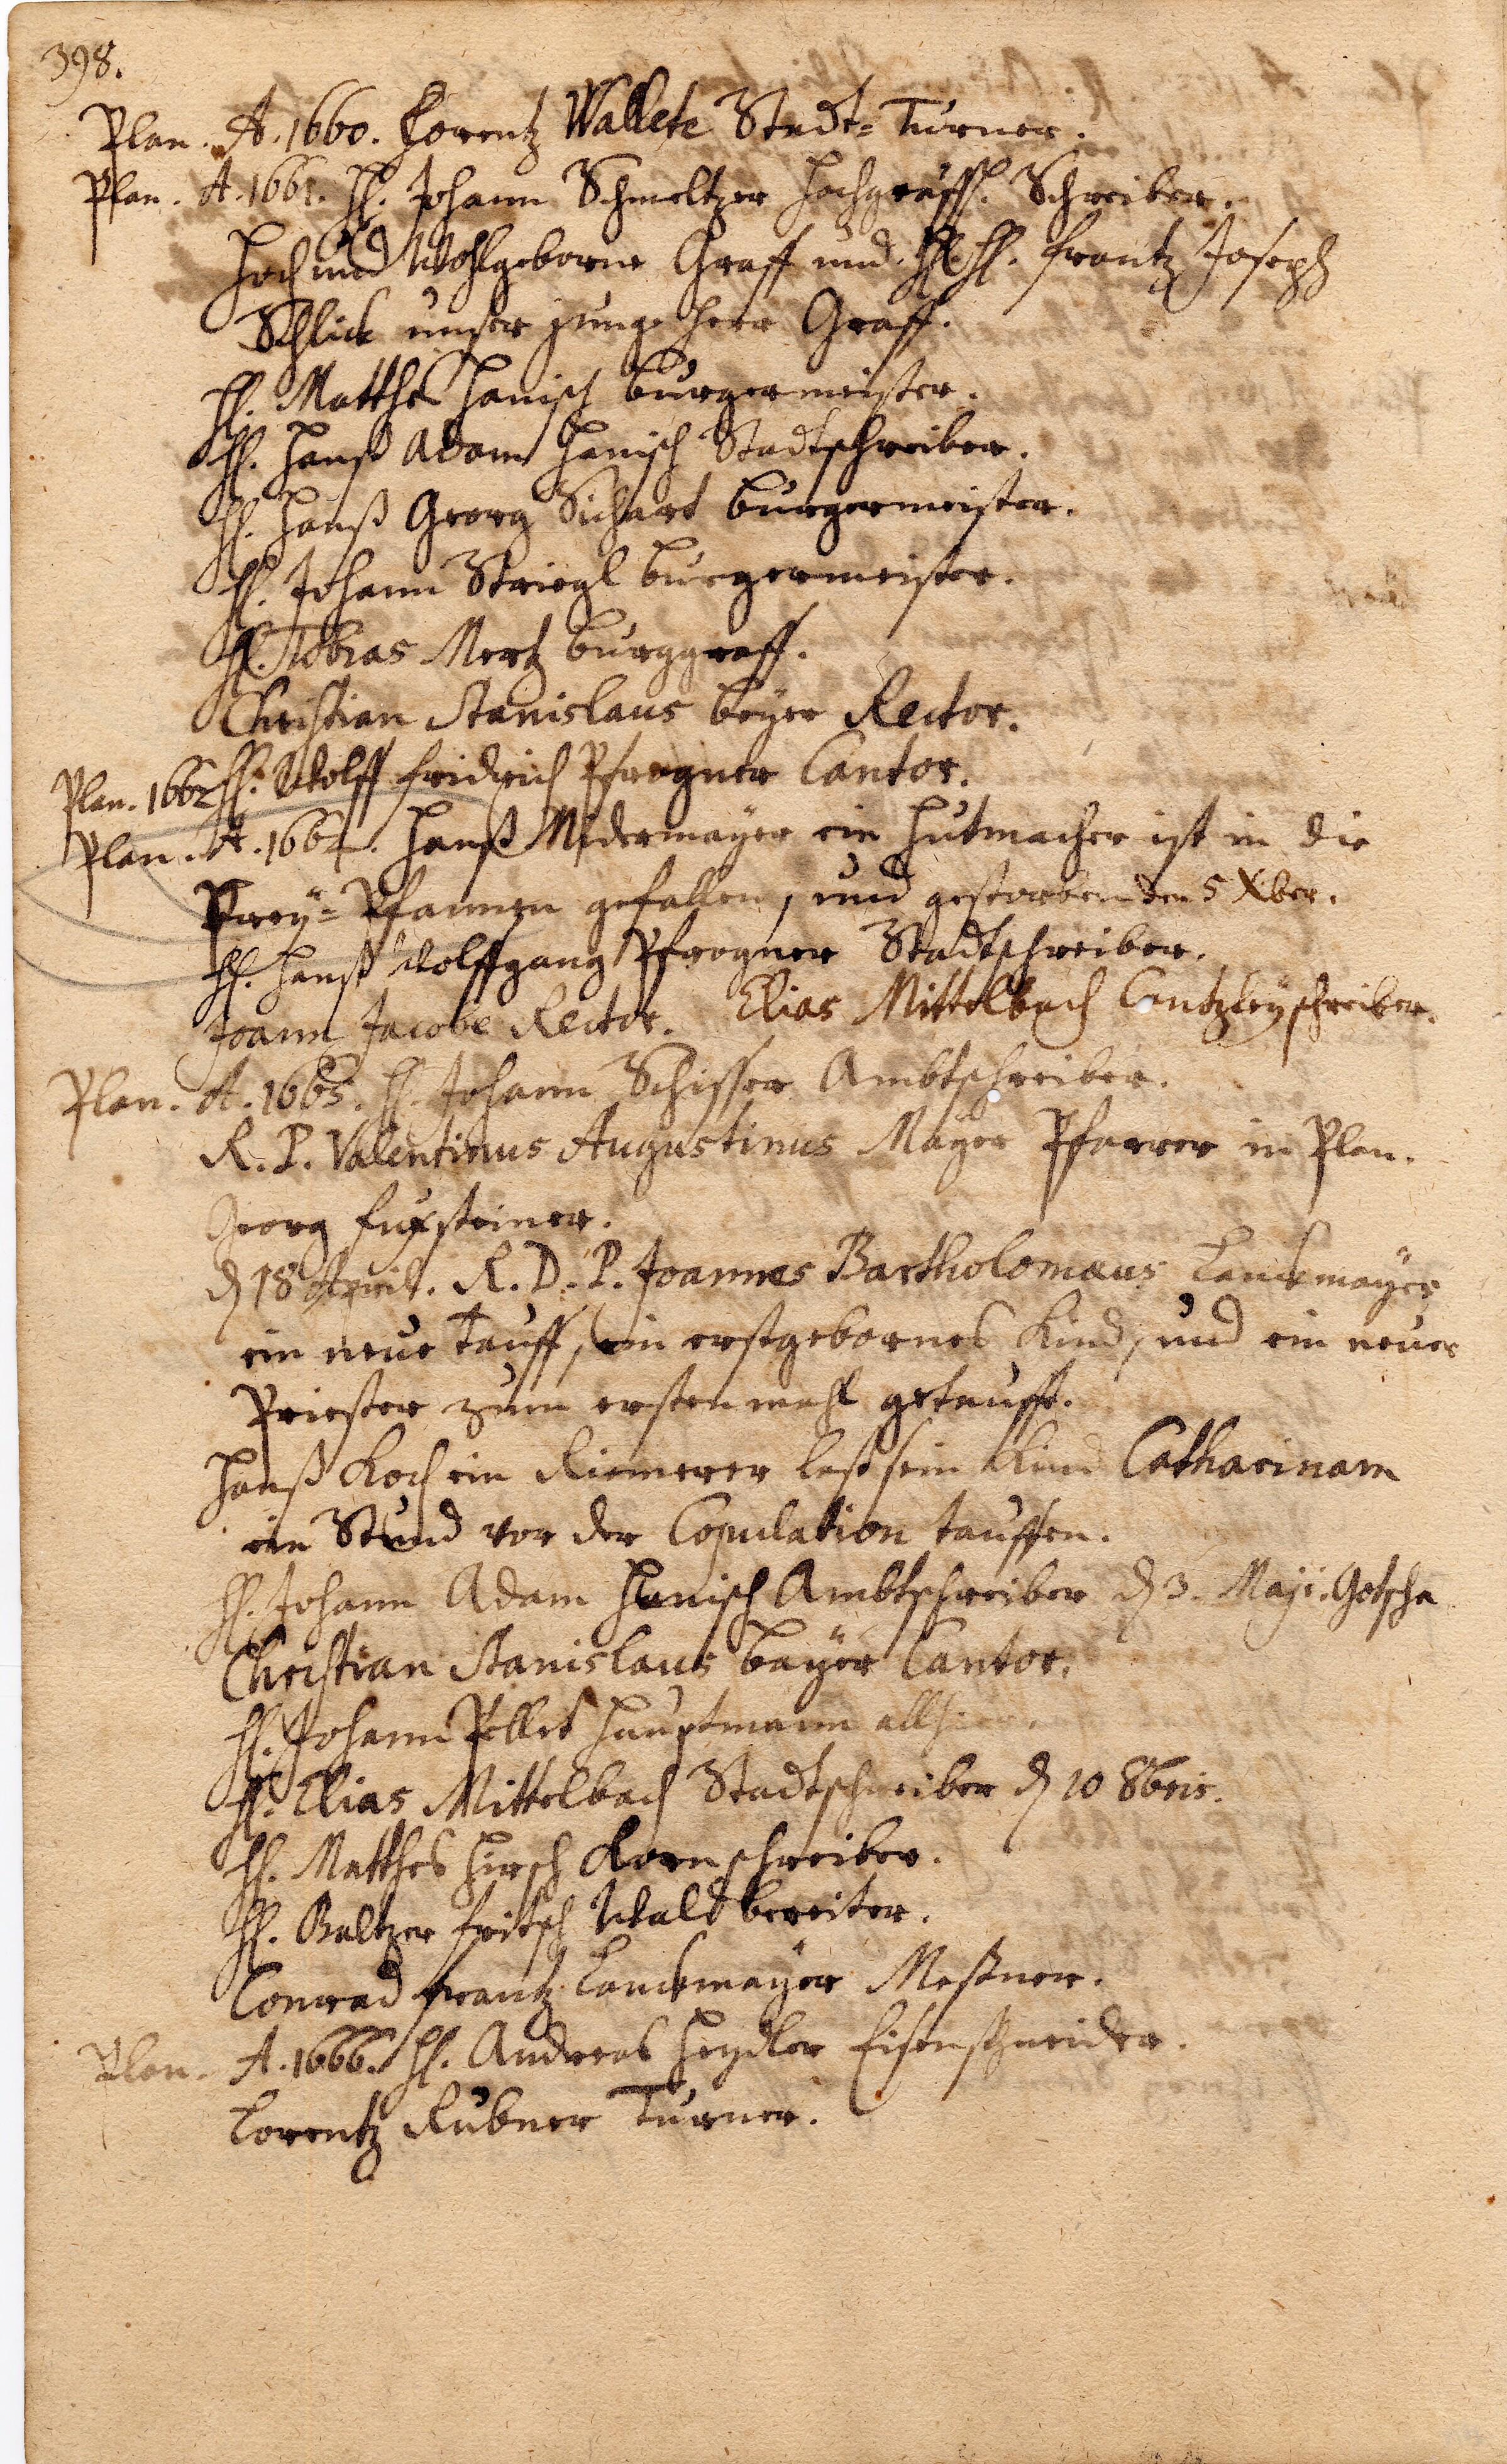 398.
Plan. A. 1660. Lorentz Wallete Stadt=Turner.
Plan. A. 1661. H. Johann Schmeltzer Hochgräffl. Schreiber.
Hoch und Wohlgeborne Graff und H. H. Frantz Joseph
Schlick unser junge Herr Graff.
H. Matthes Hanisch burgermeister.
H. Hanß Adam Hanisch Stadtschreiber.
H. Hanß Georg Sichart burgermeister.
H. Johann Striegl burgermeister.
H. Tobias Mertz burggraff.
Christian Stanislaus beyer Rector.
Plan. 1662 H. Wolff Fridrich Pfrogner Cantor.
Plan. A. 1664. Hanß Nidermayer ein Hutmacher ist in die
Prey=Pfannen gefallen, und gestorben den 5 Xber.
H. Hanß Wolffgang Pfrogner Stadtschreiber.
Joann Jacobe Rector. Elias Mittelbach Cantzleyschreiber.
Plan. A. 1665. H. Johann Schisser Ambtschreiber.
R. P. Valentinus Augustinus Mayer Pfarrer in Plan.
Georg Fuxsteiner.
d 18 April. R. D. P. Joannes Bartholomæus Lanckmayer
ein neue Tauff, ein erstgebornes Kind, und ein neuer
Priester zum ersten mahl getaufft.
Hanß Koch ein Riemerer lest sein Kind Catharinam
ein Stund vor der Copulation tauffen.
H. Johann Adam Hanisch Ambtschreiber d 3. Maji. Gotscha
Christian Stanislaus bayer Cantor.
H. Johann Pellet Hauptmann allhier.
H. Elias Mittelbach Stadtschreiber d 10 8bris.
H. Matthes Hirsch Kornschreiber.
H. Baltzer Fritsch Waldbereiter.
Conrad Frantz Lanckmayer Meßner.
Plan. A. 1666. H. Andreas Heydler Eisenschneider.
Lorentz Rubner Turner.